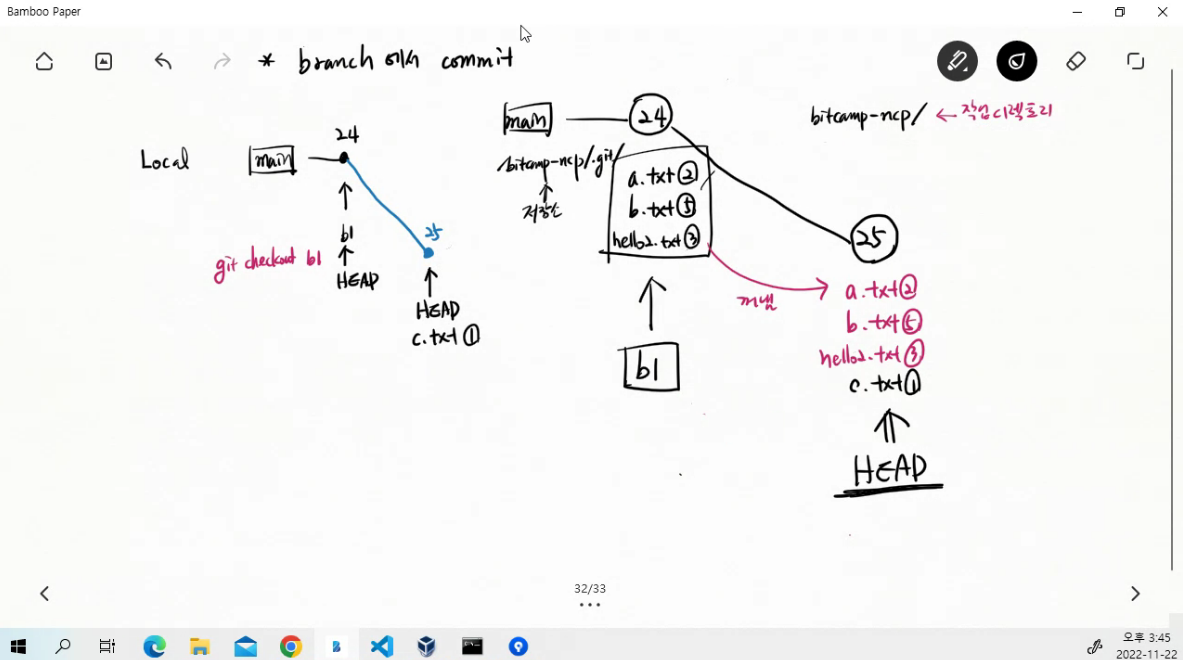 Bamboo Paper
* branch 에서 commit
Local
main
24
b1
HEAD
git checkout b1
25
HEAD
c.txt ①
main
24
bitcamp-ncp/.git/
저장소
a.txt ②
b.txt ⑤
hello2.txt ③
b1
꺼냄
bitcamp-ncp/ ← 작업 디렉토리
25
a.txt ②
b.txt ⑤
hello2.txt ③
c.txt ①
HEAD
32/33
오후 3:45
2022-11-22